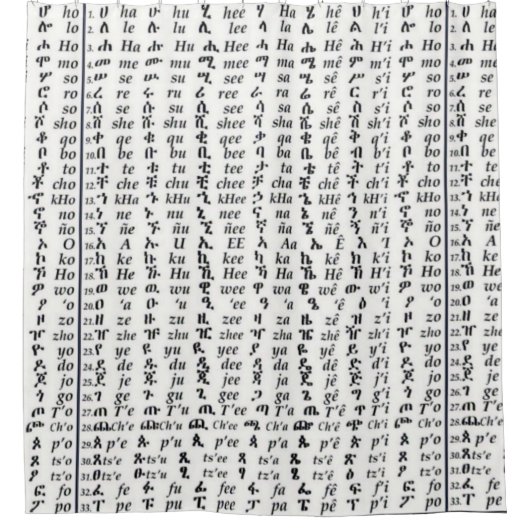 ሆ ho 1. ሀ ha ሁ hu ሂ hee ሃ Ha ሄ hê ህ h'i ሆ ho 1. ሀ ha
ሎ lo 2. ለ le ሉ lu ሊ lee ላ la ሌ lê ል l'i ሎ lo 2. ለ le
ሖ Ho 3. ሐ He ሑ Hu ሒ Hee ሓ Ha ሔ Hê ሕ H'i ሖ Ho 3. ሐ He
ሞ mo 4. መ me ሙ mu ሚ mee ማ ma ሜ mê ም m'i ሞ mo 4. መ me
ሦ so 5. ሠ se ሡ su ሢ see ሣ sa ሤ sê ሥ s'i ሦ so 5. ሠ se
ሮ ro 6. ረ re ሩ ru ሪ ree ራ ra ሬ rê ር r'i ሮ ro 6. ረ re
ሶ so 7. ሰ se ሱ su ሲ see ሳ sa ሴ sê ስ s'i ሶ so 7. ሰ se
ሾ sho 8. ሸ she ሹ shu ሺ shee ሻ sha ሼ shê ሽ sh'i ሾ sho 8. ሸ she
ቆ qo 9. ቀ qe ቁ qu ቂ qee ቃ qa ቄ qê ቅ q'i ቆ qo 9. ቀ qe
ቦ bo 10. በ be ቡ bu ቢ bee ባ ba ቤ bê ብ b'i ቦ bo 10. በ be
ቶ to 11. ተ te ቱ tu ቲ tee ታ ta ቴ tê ት t'i ቶ to 11. ተ te
ቾ cho 12. ቸ che ቹ chu ቺ chee ቻ cha ቼ chê ች ch'i ቾ cho 12. ቸ che
ኆ kHo 13. ኀ kHa ኁ kHu ኂ kHee ኃ kHa ኄ kHê ኅ kH'i ኆ kHo 13. ኀ kHa
ኖ no 14. ነ ne ኑ nu ኒ nee ና na ኔ nê ን n'i ኖ no 14. ነ ne
ኞ ño 15. ኘ ñe ኙ ñu ኚ ñee ኛ ña ኜ ñê ኝ ñ'i ኞ ño 15. ኘ ñe
ኦ O 16. አ A ኡ U ኢ EE ኣ Aa ኤ Ê እ 'I ኦ O 16. አ A
ኮ ko 17. ከ ke ኩ ku ኪ kee ካ ka ኬ kê ክ k'i ኮ ko 17. ከ ke
ኾ Ho 18. ኸ He ኹ Hu ኺ Hee ኻ Ha ኼ Hê ኽ H'i ኾ Ho 18. ኸ He
ዎ wo 19. ወ we ዉ wu ዊ wee ዋ wa ዌ wê ው w'i ዎ wo 19. ወ we
ዖ 'o 20. ዐ 'a ዑ 'u ዒ 'ee ዓ 'a ዔ 'ê ዕ 'i ዖ 'o 20. ዐ 'a
ዞ zo 21. ዘ ze ዙ zu ዚ zee ዛ za ዜ zê ዝ z'i ዞ zo 21. ዘ ze
ዦ zho 22. ዠ zhe ዡ zhu ዢ zhee ዣ zha ዤ zhê ዥ zh'i ዦ zho 22. ዠ zhe
ዮ yo 23. የ ye ዩ yu ዪ yee ያ ya ዬ yê ይ y'i ዮ yo 23. የ ye
ዶ do 24. ደ de ዱ du ዲ dee ዳ da ዴ dê ድ d'i ዶ do 24. ደ de
ጆ jo 25. ጀ je ጁ ju ጂ jee ጃ ja ጄ jê ጅ j'i ጆ jo 25. ጀ je
ጎ go 26. ገ ge ጉ gu ጊ gee ጋ ga ጌ gê ግ g'i ጎ go 26. ገ ge
ጦ T'o 27. ጠ T'e ጡ T'u ጢ T'ee ጣ T'a ጤ T'ê ጥ T'i ጦ T'o 27. ጠ T'e
ጮ Ch'o 28. ጨ Ch'e ጩ Ch'u ጪ Ch'ee ጫ Ch'a ጬ Ch'ê ጭ Ch'i ጮ Ch'o 28. ጨ Ch'e
ጶ p'o 29. ጰ p'e ጱ p'u ጲ p'ee ጳ p'a ጴ p'ê ጵ p'i ጶ p'o 29. ጰ p'e
ጾ ts'o 30. ጸ ts'e ጹ ts'u ጺ ts'ee ጻ ts'a ጼ ts'ê ጽ ts'i ጾ ts'o 30. ጸ ts'e
ፆ tz'o 31. ፀ tz'e ፁ tz'u ፂ tz'ee ፃ tz'a ፄ tz'ê ፅ tz'i ፆ tz'o 31. ፀ tz'e
ፎ fo 32. ፈ fe ፉ fu ፊ fee ፋ fa ፌ fê ፍ f'i ፎ fo 32. ፈ fe
ፖ po 33. ፐ pe ፑ pu ፒ pee ፓ pa ፔ pê ፕ p'i ፖ po 33. ፐ pe